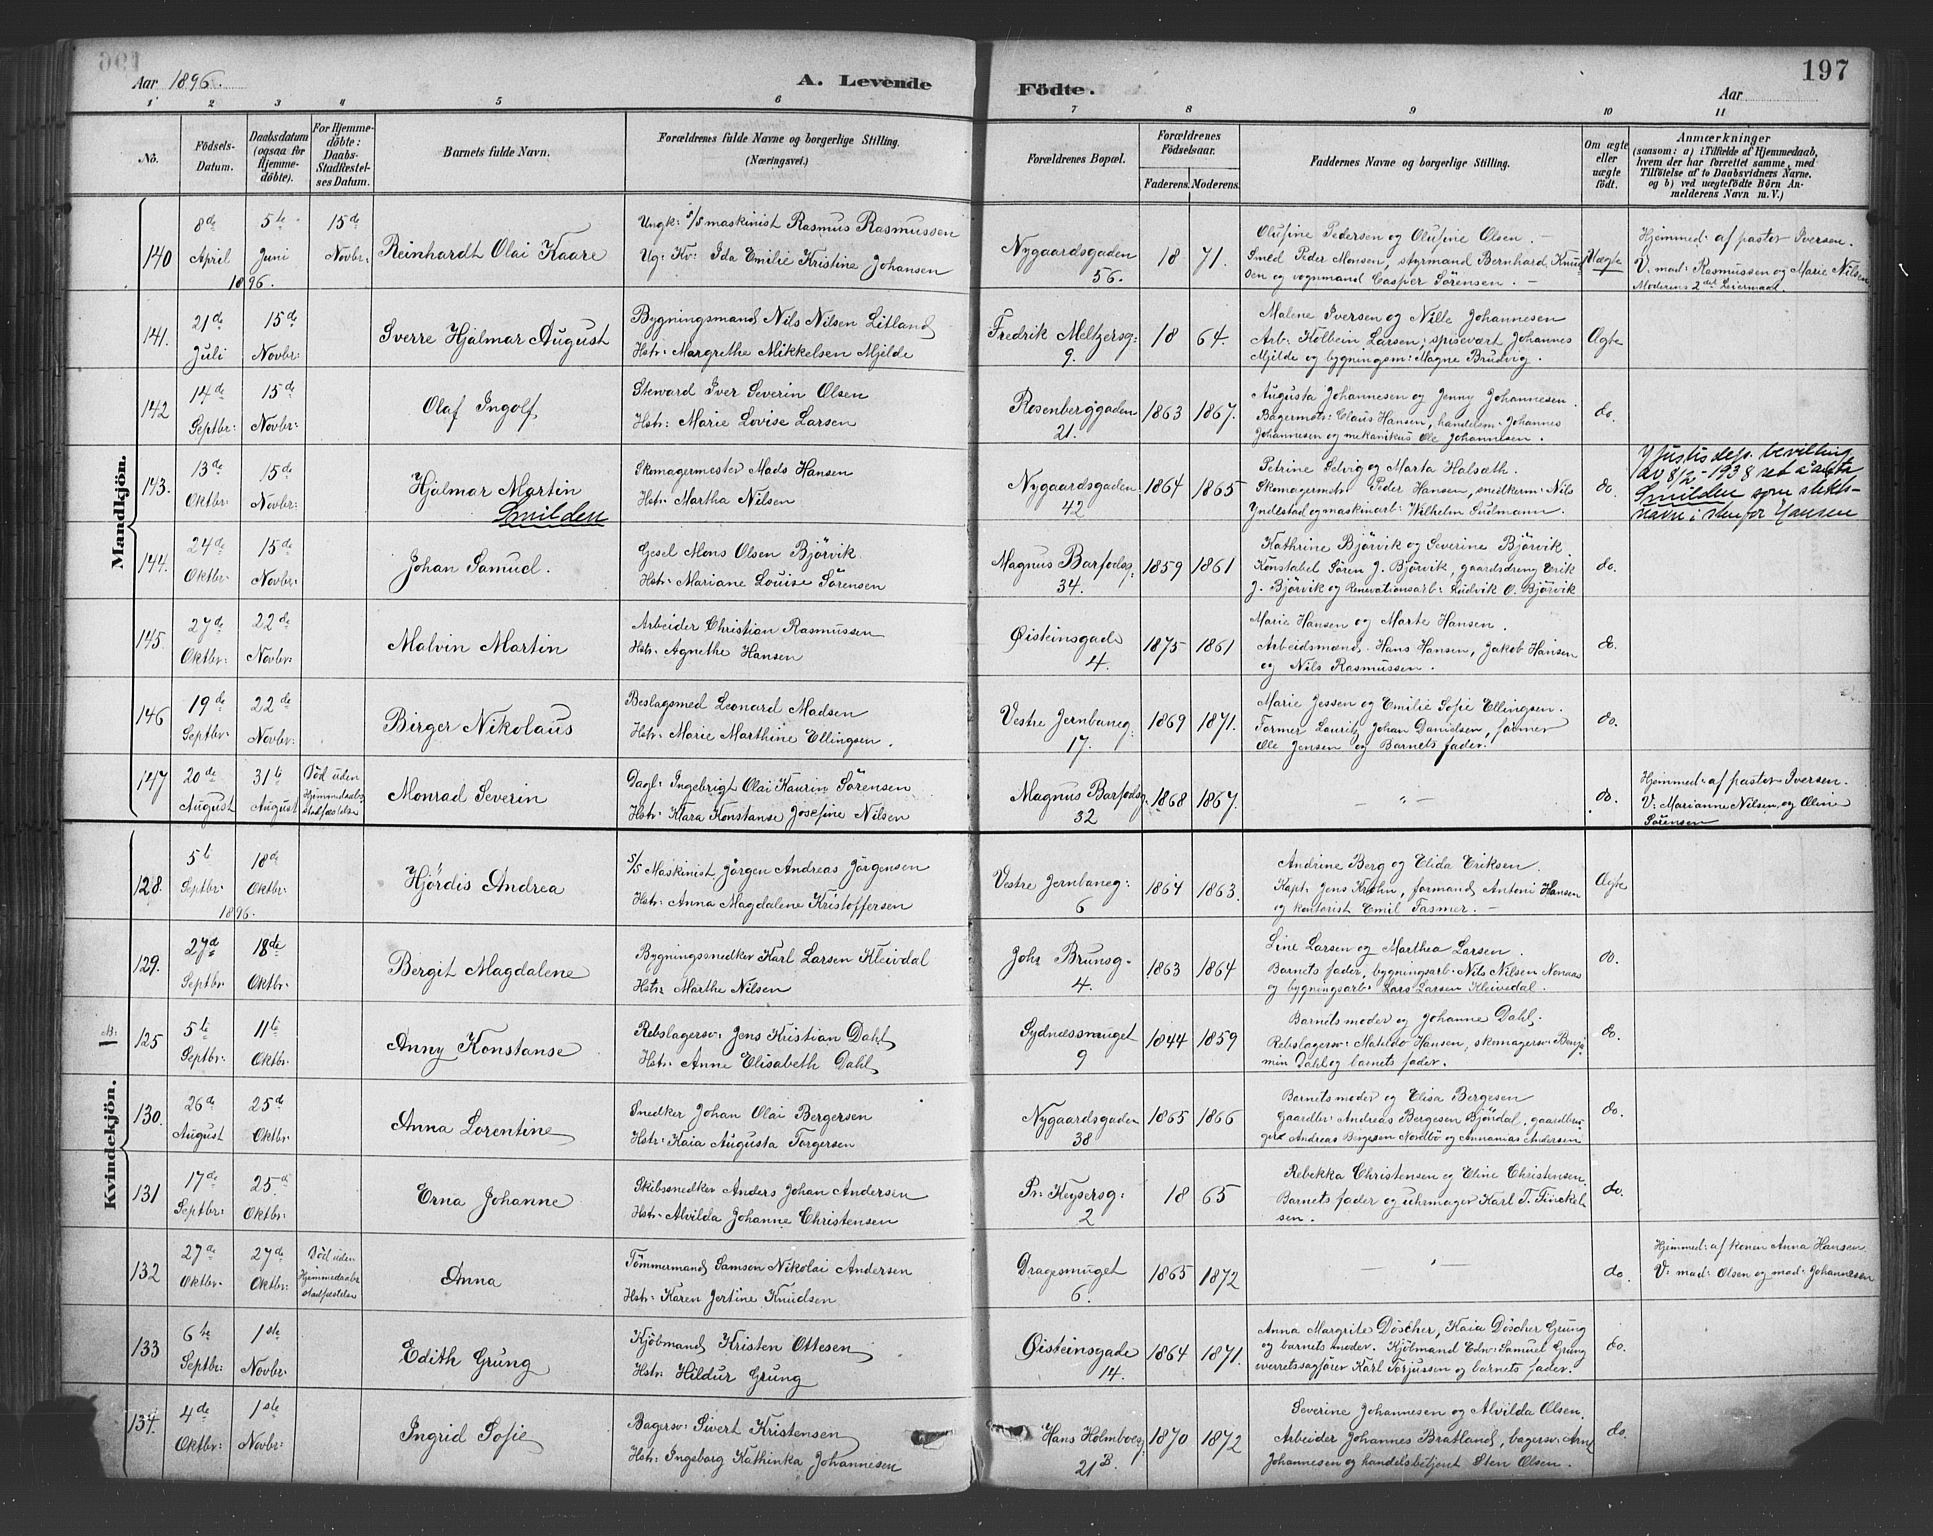 Aar 1896.
A. Levende Födte.
197
Aar
1 2 3 4 5 6 7 8 9 10 11
No. | Födsels-Datum. | Daabsdatum (ogsaa for Hjemme-döbte). | For Hjemme-döbte: Daabs-Stadfæstel-ses Datum. | Barnets fulde Navn. | Forældrenes fulde Navne og borgerlige Stilling. (Næringsvei.) | Forældrenes Bopæl. | Forældrenes Födselsaar. Faderens. Moderens. | Faddernes Navne og borgerlige Stilling. | Om ægte eller uægte födt. | Anmærkninger (saasom: a) i Tilfælde af Hjemmedaab, hvem der har forrettet samme, med Tilföielse af to Daabsvidners Navne. og b) ved uægtefödte Börn An-melderens Navn m. V.)
Mandkjön.
140 | 8de April 1896. | 5te Juni | 15de Novbr: | Reinhardt Olai Kaare | Ungk: S/S maskinist Rasmus Rasmussen
Ug: Kv: Ida Emilie Kristine Johansen | Nygaardsgaden 56. | 18 71. | Olufine Pedersen og Olufine Olsen. –
Smed Peder Monsen, styrmand Bernhard Knud
sen og vognmand Casper Sörensen. – | Uægte | Hjemmed: af pastor Iversen.
V: mad: Rasmussen og Marie Nilsen
Moderens 2det Leiermaal.
141. | 21de Juli | 15de Novbr: | Sverre Hjalmar August | Bygningsmand Nils Nilsen Litland
Hstr: Margrethe Mikkelsen Mjelde | Fredrik Meltzersg: 9. | 18 64. | Malene Iversen og Nille Johannesen
Arb: Kolbein Larsen, spisevært Johannes
Mjelde og bygningsm: Magne Brudvig. | Ægte
142 | 14de Septbr: | 15de Novbr: | Olaf Ingolf | Steward Iver Severin Olsen
Hstr: Marie Lovise Larsen | Rosenberggaden 21. | 1863 1867. | Augusta Johannesen og Jenny Johannesen.
Bagermstr: Claus Hansen, handelsm: Johannes
Johannesen og mekanikus Ole Johannesen. | do.
143. | 13de Oktbr: | 15de Novbr: | Hjalmar Martin
Smilden | Skomagermester Mads Hansen
Hstr: Martha Nilsen | Nygaardsgaden 42 | 1864 1865 | Petrine Selvig og Marta Halsæth.
Skomagermstr: Peder Hansen, snedkerm: Nils
Yndestad og maskinarb: Wilhelm Sulmann. | do. | Justisdep. bevilling
av 8/2-1938 ret å anta
Smilden som slekts-
navn i stenfor Hansen
144. | 24de Oktbr: | 15de Novbr: | Johan Samuel. | Gesel Mons Olsen Björvik.
Hstr: Mariane Louise Sörensen | Magnus Barfodsg: 34. | 1859 1861 | Kathrine Björvik og Severine Björvik.
Konstabel Sören J. Björvik, gaardsdreng Erik
J. Björvik og Renovationsarb: Ludvik O. Björvik | do.
145. | 27de Oktbr: | 22de Novbr: | Malvin Martin | Arbeider Christian Rasmussen
Hstr: Agnethe Hansen | Øisteinsgade 4. | 1875 1861 | Marie Hansen og Marte Hansen.
Arbeidsmænd Hans Hansen, Jakob Hansen
og Nils Rasmussen. | do.
146 | 19de Septbr: | 22de Novbr: | Birger Nikolaus | Beslagsmed Leonard Madsen
Hstr: Marie Marthine Ellingsen. | Vestre Jernbaneg: 17. | 1869 1871. | Marie Jessen og Emilie Sofie Ellingsen.
Former Lauritz Johan Danielsen, former
Ole Jensen og Barnets fader. | do.
147 | 20de August | 31te August | Död uden Hjemmedaabs stadfæstelse | Monrad Severin | Dagl: Ingebrigt Olai Kaurin Sörensen
Hstr: Klara Konstanse Josefine Nilsen | Magnus Barfodsg: 32 | 1868 1867. | – " – | do. | Hjemmed: af pastor Iversen.
V: Marianne Nilsen og Oline
Sörensen
Kvindekjön.
128. | 5te Septbr: 1896. | 18de Oktbr: | Hjördis Andrea | S/S Maskinist Jörgen Andreas Jörgensen
Hstr: Anna Magdalene Kristoffersen | Vestre Jernbaneg: 6 | 1864 1863. | Andrine Berg og Elida Eriksen.
Kapt: Jens Krohn, formand Antoni Hansen
og kontorist Emil Fasmer. – | Ægte
129. | 27de Septbr: | 18de Oktbr: | Bergit Magdalene | Bygningssnedker Karl Larsen Kleivdal
Hstr: Marthe Nilsen | Johs Brunsg: 4. | 1863 1864 | Line Larsen og Marthea Larsen.
Barnets fader, bygningsarb: Nils Nilsen Nonaas
og bygningsarb: Lars Larsen Kleivedal. | do.
125 | 5te Septbr: | 11te Oktbr: | Anny Konstanse | Rebslagersv: Jens Kristian Dahl
Hstr: Anne Elisabeth Dahl | Sydnæssmuget 9 | 1844 1859 | Barnets moder og Johanne Dahl.
Rebslagersv: Mathias Hansen, skomagersv: Benja
min Dahl og barnets fader. | do.
130. | 26de August | 25de Oktbr: | Anna Lorentine | Snedker Johan Olai Bergersen
Hstr: Kaia Augusta Torgersen | Nygaardsgaden 38 | 1865 1866 | Barnets moder og Elisa Bergesen
Gaardbr: Andreas Bergesen Bjöndal, gaardbru-
ger Andreas Bergesen Nordbö og Annanias Andersen | do.
131 | 17de Septbr: | 25de Oktbr: | Erna Johanne | Skibssnedker Anders Johan Andersen
Hstr: Alvilda Johanne Christensen | Pr: Keysersg: 2 | 18 65 | Rebekka Christensen og Eline Christensen.
Barnets fader og uhrmager Karl T. Sinckel
sen. | do.
132 | 27de Oktbr: | 27de Oktbr: | Död uden Hjemmedaabs stadfæstelse | Anna | Tömmermand Samson Nikolai Andersen
Hstr: Karen Jertine Knudsen | Dragesmuget 6. | 1865 1872 | – " – | do. | Hjemmed: af konen Anna Hansen.
V: mad: Olsen og mad: Johannesen
133 | 6te Septbr: | 1ste Novbr: | Edith Grung | Kjöbmand Kristen Ottesen
Hstr: Hildur Grung | Øisteinsgade 14. | 1864 1871. | Anna Margrite Döscher, Kaia Döscher Grung
og barnets moder. Kjöbmand Edv: Samuel Grung
overretssagförer Karl Torjussen og barnets fader. | do.
134. | 4de Oktbr: | 1ste Novbr: | Ingrid Sofie | Bagersv: Sivert Kristensen
Hstr: Ingeborg Kathinka Johannesen | Hans Holmboesg: 21B. | 1870 1872 | Severine Johannesen og Alvilda Olsen.
Arbeider Johannes Bratland, bagersv: Arne
Johannesen og handelsbetjent Sten Olsen. | do.